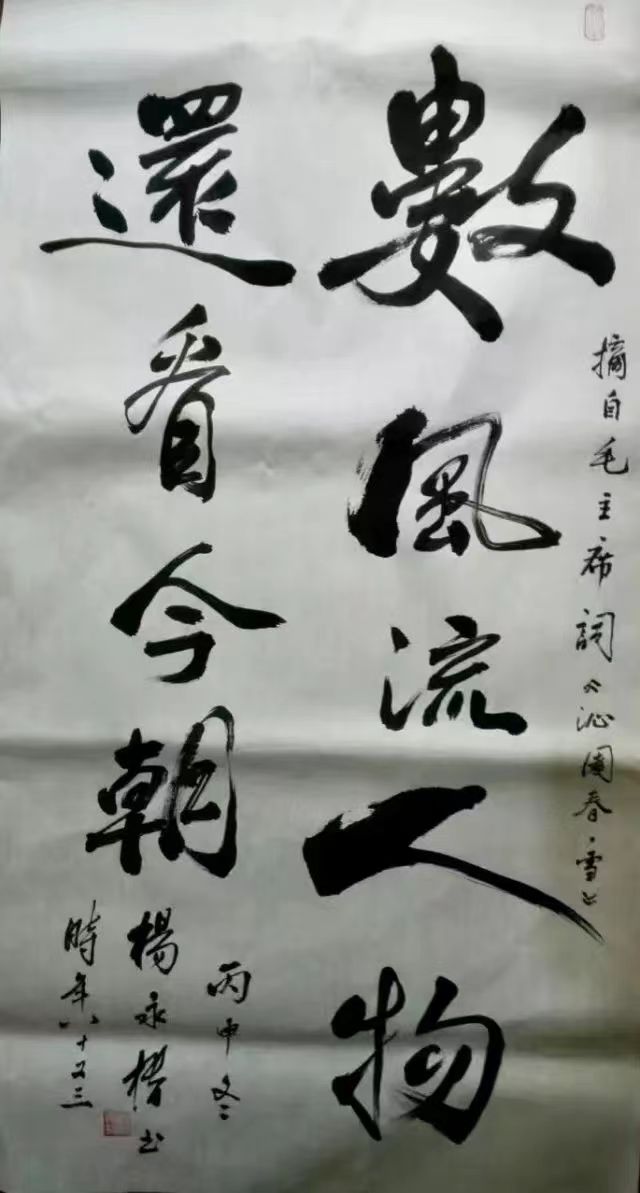 摘自毛主席詞《沁園春·雪》
數風流人物
還看今朝
丙申冬
楊永书
時年八十又三